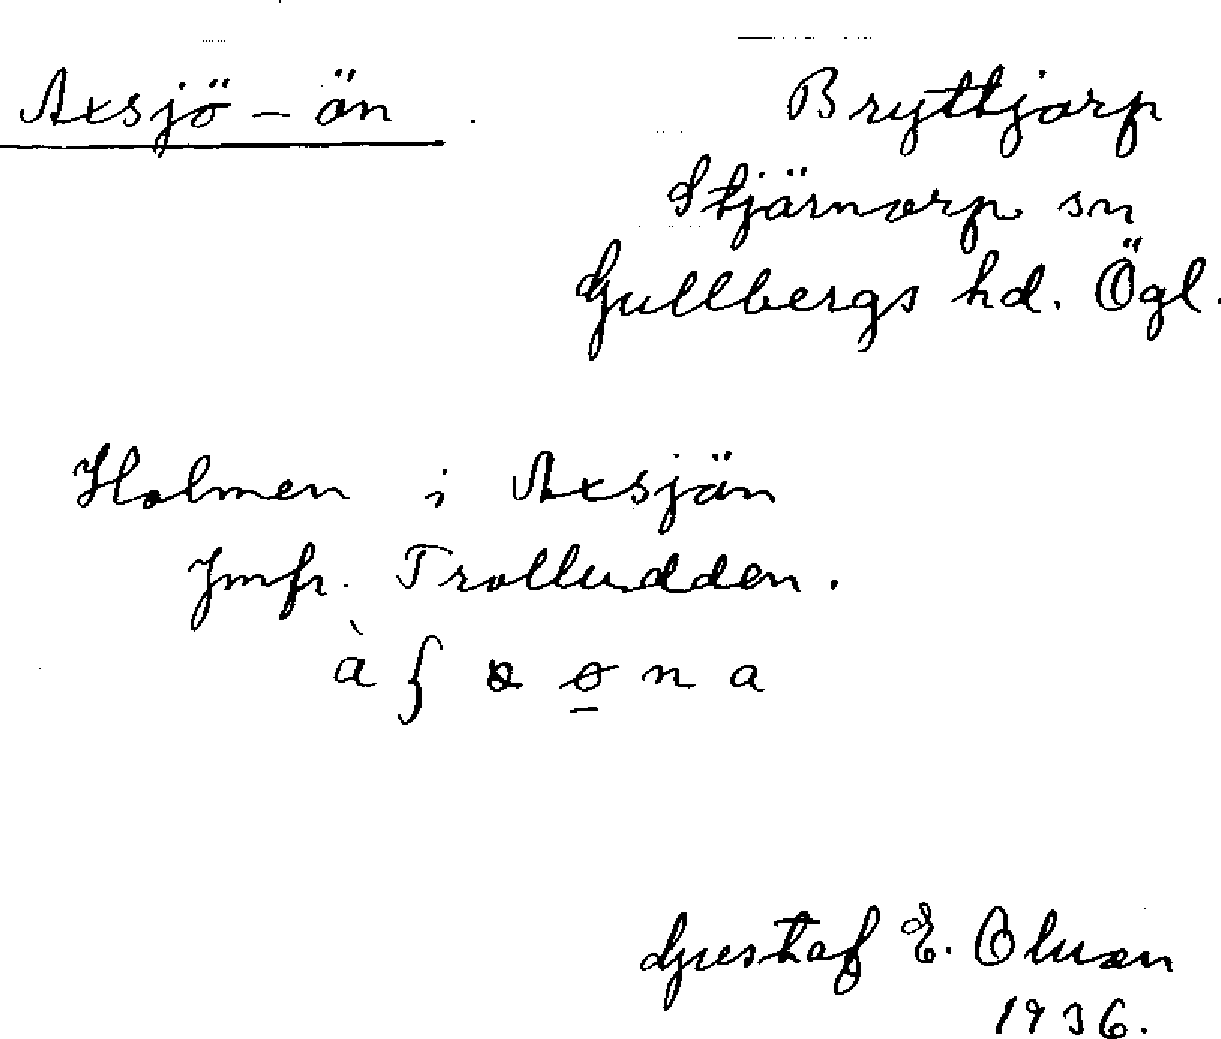 Axsjö - ön
Bryttjorp
Stjärnorp sn
Gullbergs hd. Ögl.
Holmen i Axsjön
Jmfr. Trolludden.
Gustaf E. Olsson
1936.